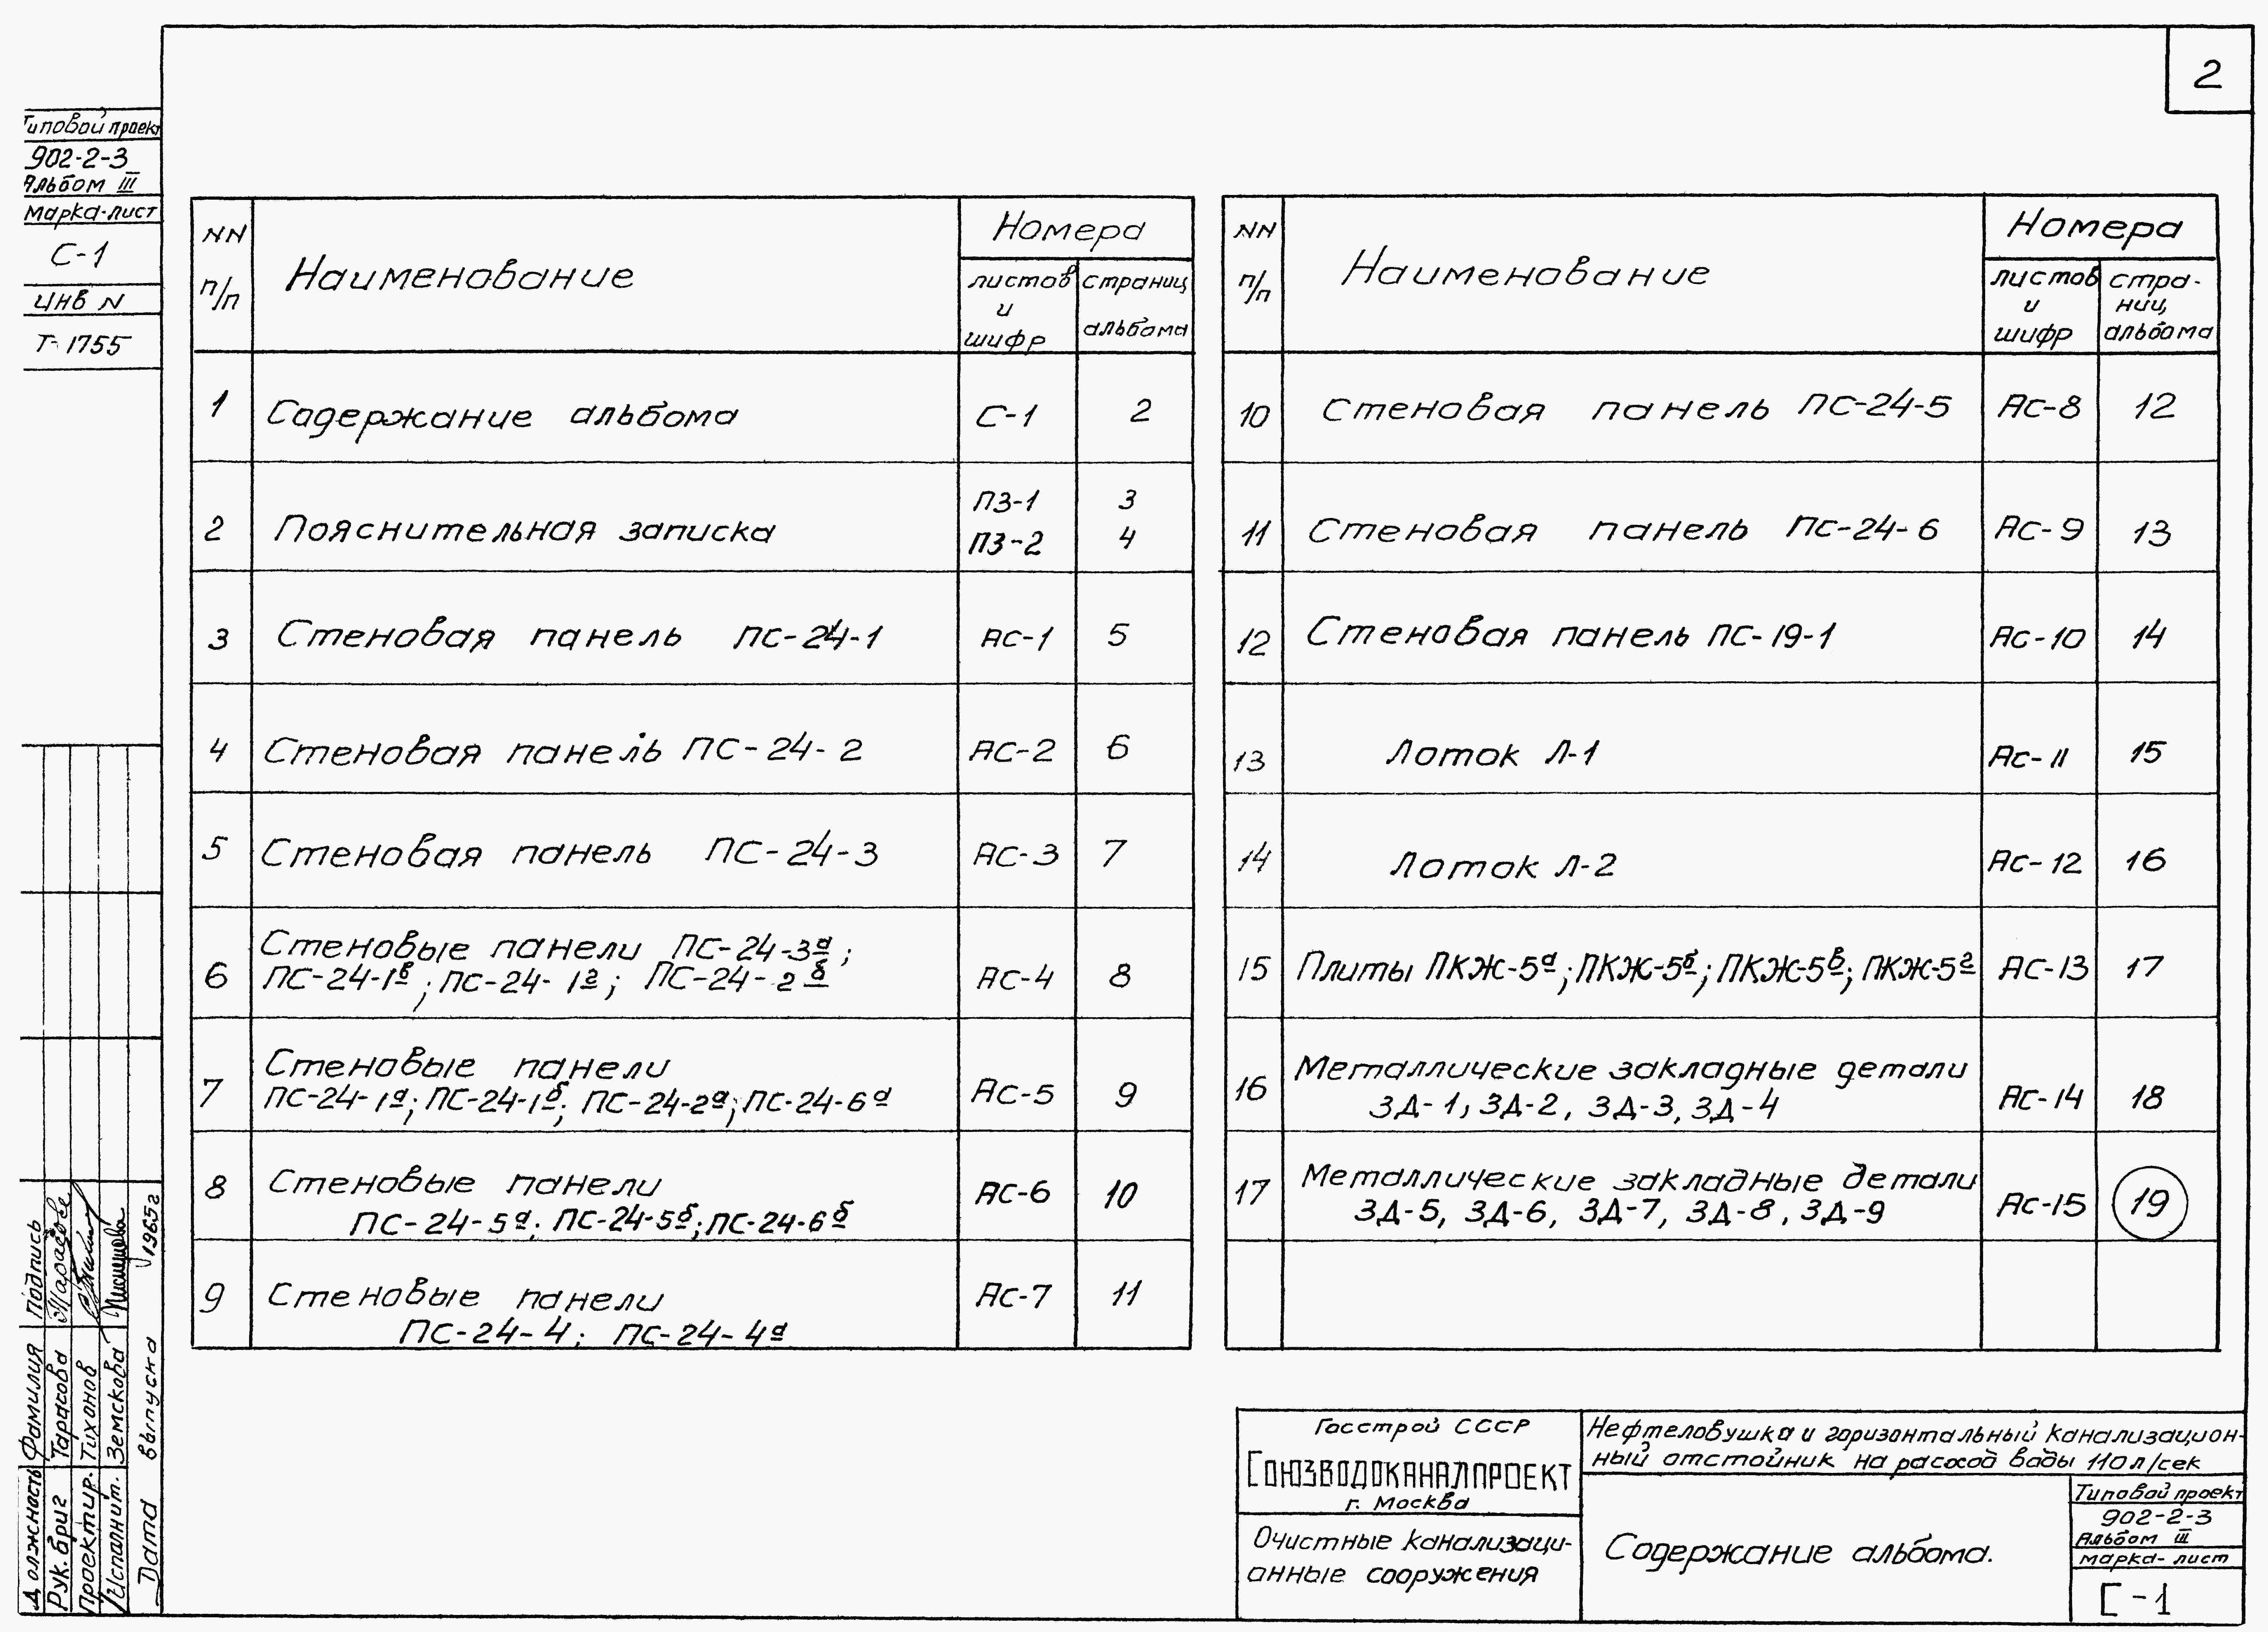 2
Типовой проект
902-2-3
Альбом III
марка-лист
С-1
инв N
Т-1755
NN п/п
Наименование
Номера
листов и шифр
страниц альбома
1 Содержание альбома С-1 2
2 Пояснительная записка ПЗ-1 3
ПЗ-2 4
3 Стеновая панель ПС-24-1 АС-1 5
4 Стеновая панель ПС-24-2 АС-2 6
5 Стеновая панель ПС-24-3 АС-3 7
6 Стеновые панели ПС-24-3а;
ПС-24-1в; ПС-24-1г; ПС-24-2б АС-4 8
7 Стеновые панели
ПС-24-1а; ПС-24-1б; ПС-24-2а; ПС-24-6а АС-5 9
8 Стеновые панели
ПС-24-5а; ПС-24-5б; ПС-24-6б АС-6 10
9 Стеновые панели
ПС-24-4; ПС-24-4а АС-7 11
NN п/п
Наименование
Номера
листов и шифр
стра-
ниц,
альбома
10 Стеновая панель ПС-24-5 АС-8 12
11 Стеновая панель ПС-24-6 АС-9 13
12 Стеновая панель ПС-19-1 АС-10 14
13 Лоток Л-1 АС-11 15
14 Лоток Л-2 АС-12 16
15 Плиты ПКЖ-5а; ПКЖ-5б; ПКЖ-5в; ПКЖ-5г АС-13 17
16 Металлические закладные детали
ЗД-1, ЗД-2, ЗД-3, ЗД-4 АС-14 18
17 Металлические закладные детали
ЗД-5, ЗД-6, ЗД-7, ЗД-8, ЗД-9 АС-15 19
Должность Фамилия Подпись
Рук. бриг Тарасова
Проектир. Тихонов
Исполнит. Земскова
Дата выпуска 1965г
Госстрой СССР
СОЮЗВОДОКАНАЛПРОЕКТ
г. Москва
Очистные канализаци-
онные сооружения
Нефтеловушка и горизонтальный канализацион-
ный отстойник на расход воды 110 л/сек
Содержание альбома.
Типовой проект
902-2-3
Альбом III
марка-лист
С-1